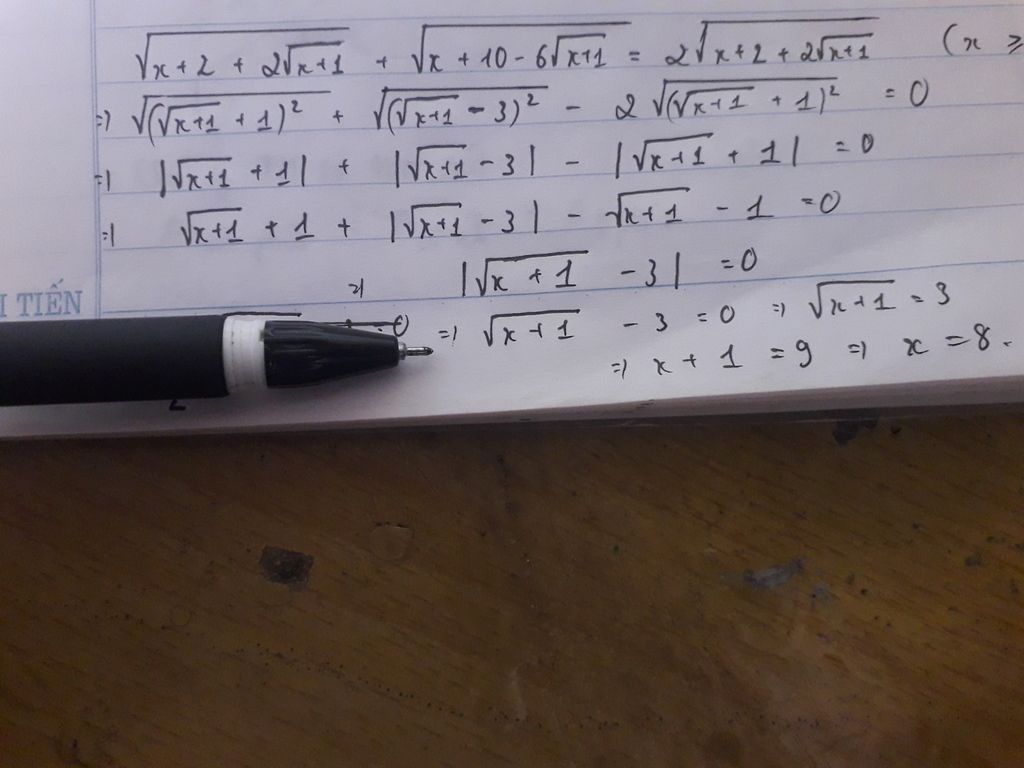 √(x+2 + 2√(x+1)) + √(x+10-6√(x+1)) = 2√(x+2+2√(x+1)) (x ≥
=> √((√(x+1) + 1)²) + √((√(x+1) - 3)²) - 2√((√(x+1) + 1)²) = 0
=> |√(x+1) + 1| + |√(x+1) - 3| - |√(x+1) + 1| = 0
=> √(x+1) + 1 + |√(x+1) - 3| - √(x+1) - 1 = 0
=> |√(x+1) - 3| = 0
I TIẾN
=> √(x+1) - 3 = 0 => √(x+1) = 3
=> x + 1 = 9 => x = 8.